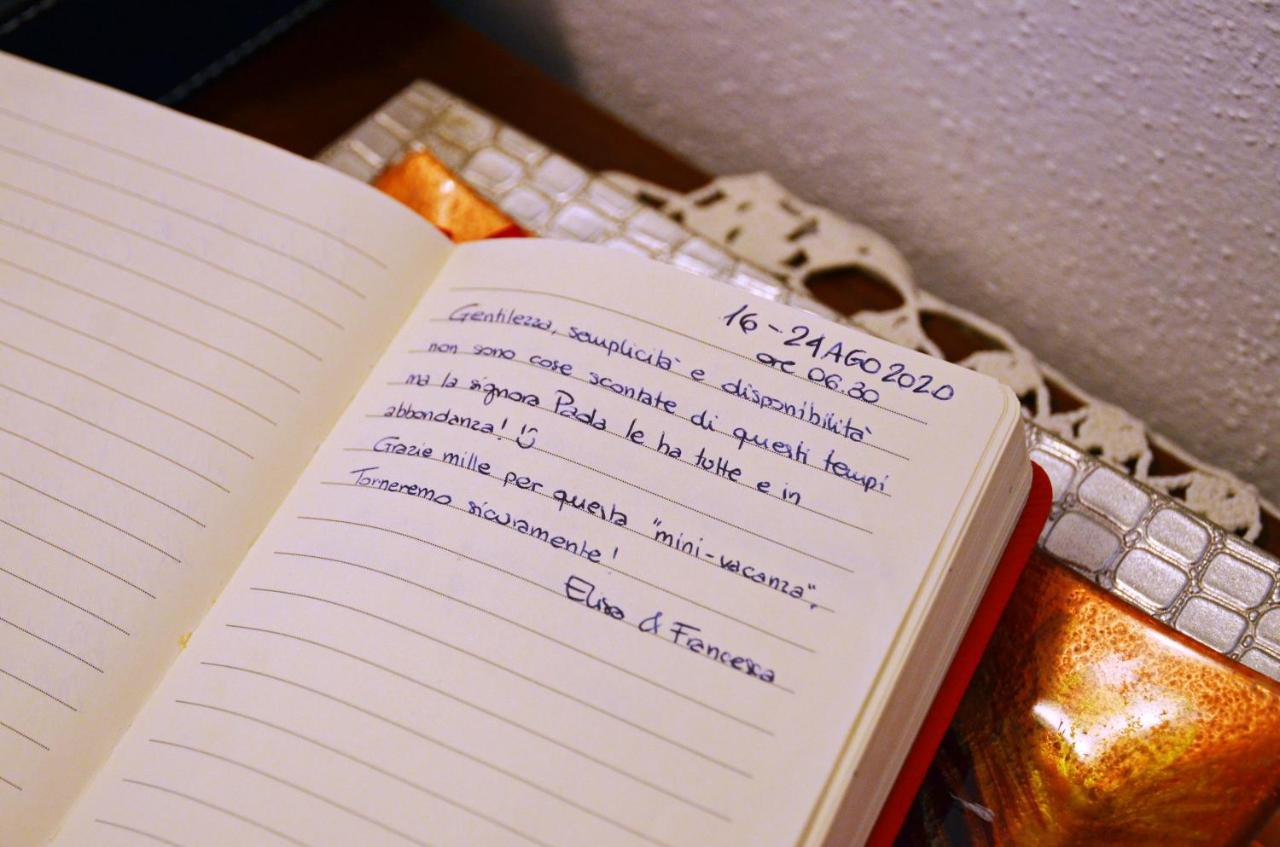 16-21 AGO 2020
ore 06.30
Gentilezza, semplicità e disponibilità
non sono cose scontate di questi tempi
ma la signora Paola le ha tutte e in
abbondanza!
Grazie mille per questa "mini-vacanza".
Torneremo sicuramente!
Elisa & Francesca